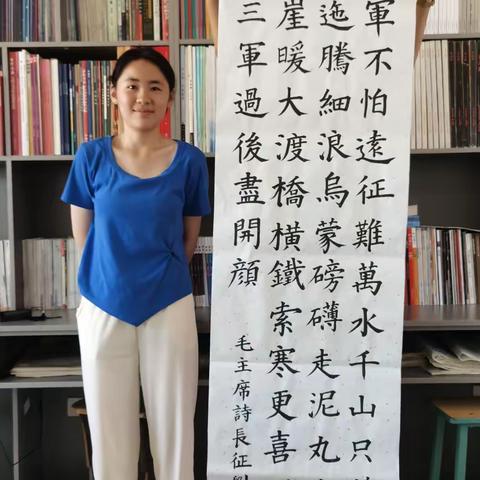 軍不怕遠征難萬水千山只
迤騰細浪烏蒙磅礴走泥丸
崖暖大渡橋橫鐵索寒更喜
三軍過後盡開顏
毛主席詩長征